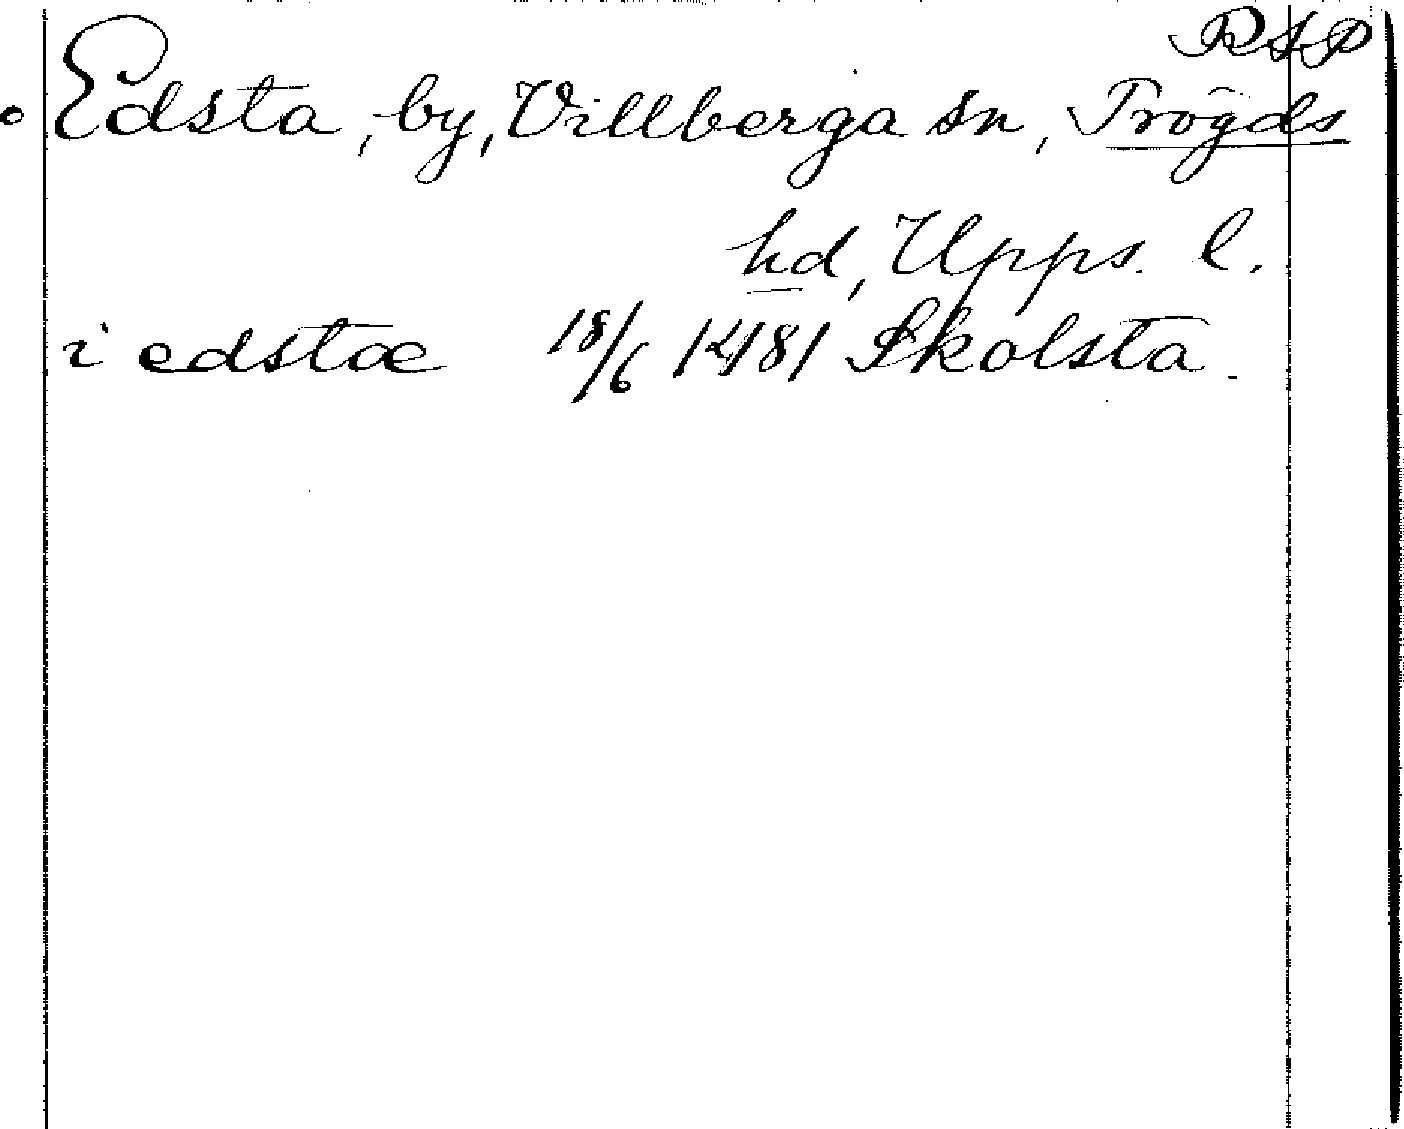 RAP
Edsta, by, Villberga sn, Trögds
hd, Upps. l.
i edstæ 18/6 1481 Skolsta.